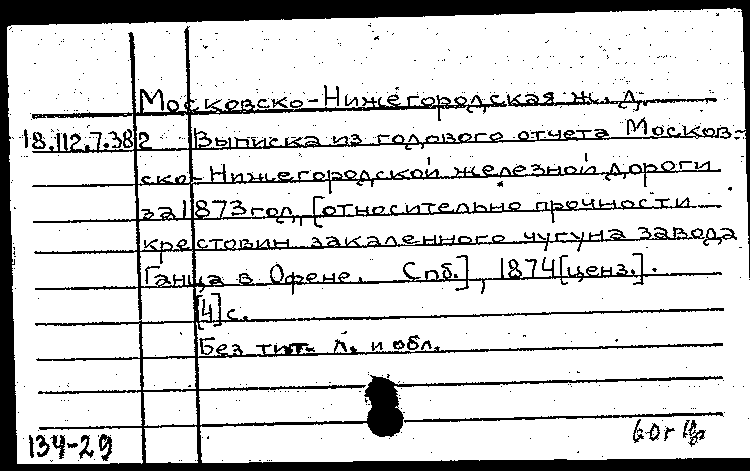 Московско-Нижегородская ж. д.
18.112.7.382 Выписка из годового отчета Москов-
ско-Нижегородской железной дороги
за 1873 год, [относительно прочности
крестовин закаленного чугуна завода
Ганца в Офене. Спб.], 1874 [ценз.].
[4] с.
Без тит. л. и обл.
134-29
60г